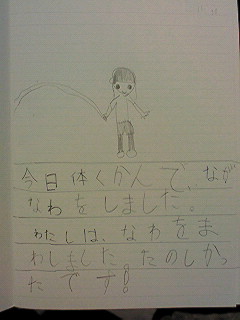 今日体くかんで、なが
なわをしました。
わたしは、なわをま
わしました。たのしかっ
たです!